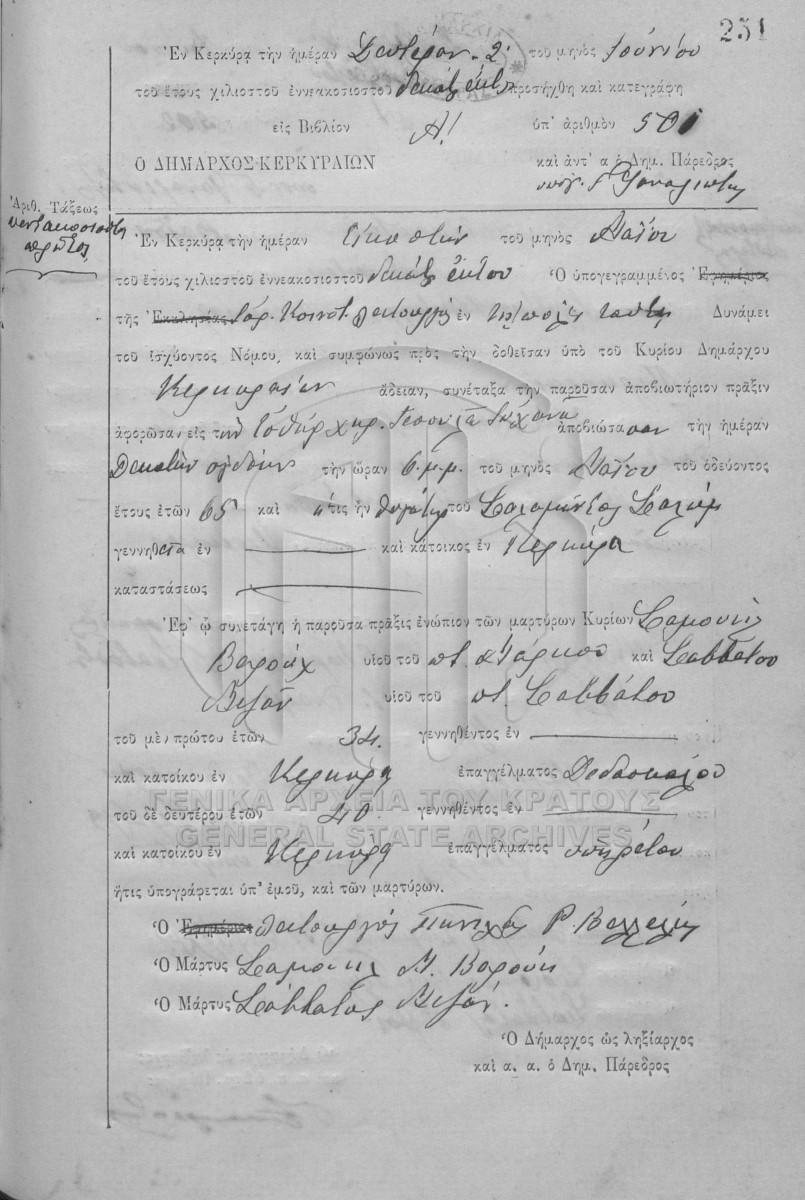 251
Ἐν Κερκύρᾳ τὴν ἡμέραν Δευτέραν 2 τοῦ μηνὸς Ἰουνίου
τοῦ ἔτους χιλιοστοῦ ἐννεακοσιοστοῦ δεκάτ. ἕκτου προσήχθη καὶ κατεγράφη
εἰς Βιβλίον Α! ὑπ' ἀριθμὸν 501
Ο ΔΗΜΑΡΧΟΣ ΚΕΡΚΥΡΑΙΩΝ καὶ ἀντ' α ὁ Δημ. Πάρεδρος
ὑπογ.
Ἀριθ. Τάξεως
πεντακοσιοστὸς
πρῶτος
Ἐν Κερκύρᾳ τὴν ἡμέραν εἰκοστὴν τοῦ μηνὸς Μαΐου
τοῦ ἔτους χιλιοστοῦ ἐννεακοσιοστοῦ δεκάτ. ἕκτου Ὁ ὑπογεγραμμένος Ἐφημέριος
τῆς Ἐκκλησίας Ἰσρ. Κοινότ. Λειτουργὸς ἐν τῇ πόλει ταύτῃ Δυνάμει
τοῦ ἰσχύοντος Νόμου, καὶ συμφώνως πρὸς τὴν δοθεῖσαν ὑπὸ τοῦ Κυρίου Δημάρχου
Κερκυραίων ἄδειαν, συνέταξα τὴν παροῦσαν ἀποβιωτήριον πρᾶξιν
ἀφορῶσαν εἰς τὴν Ἐσθὴρ χηρ. ἀποβιώσασαν τὴν ἡμέραν
Δεκάτην ὀγδόην τὴν ὥραν 6 μ.μ. τοῦ μηνὸς Μαΐου τοῦ ὁδεύοντος
ἔτους ἐτῶν 65 καὶ ἥτις ἦν θυγάτηρ τοῦ Σολομῶντος
γεννηθεῖσα ἐν καὶ κάτοικος ἐν Κερκύρᾳ
καταστάσεως
Ἐφ' ᾧ συνετάγη ἡ παροῦσα πρᾶξις ἐνώπιον τῶν μαρτύρων Κυρίων Σαμουὴλ
Βαροὺχ υἱοῦ τοῦ ποτ. Μάρκου καὶ Σαββάτου
Μιζὰν υἱοῦ τοῦ ποτ. Σαββάτου
τοῦ μὲν πρώτου ἐτῶν 34. γεννηθέντος ἐν
καὶ κατοίκου ἐν Κερκύρᾳ ἐπαγγέλματος Διδασκάλου
τοῦ δὲ δευτέρου ἐτῶν 40 γεννηθέντος ἐν
ΓΕΝΙΚΑ ΑΡΧΕΙΑ ΤΟΥ ΚΡΑΤΟΥΣ
GENERAL STATE ARCHIVES
καὶ κατοίκου ἐν Κερκύρᾳ ἐπαγγέλματος ὑπηρέτου
ἥτις ὑπογράφεται ὑπ' ἐμοῦ, καὶ τῶν μαρτύρων.
Ὁ Ἐφημέριος Λειτουργὸς Ρ. Βελλέλης
Ὁ Μάρτυς Σαμουὴλ Μ. Βαρούχ
Ὁ Μάρτυς Σάββατος Μιζάν.
Ὁ Δήμαρχος ὡς ληξίαρχος
καὶ α. α. ὁ Δημ. Πάρεδρος